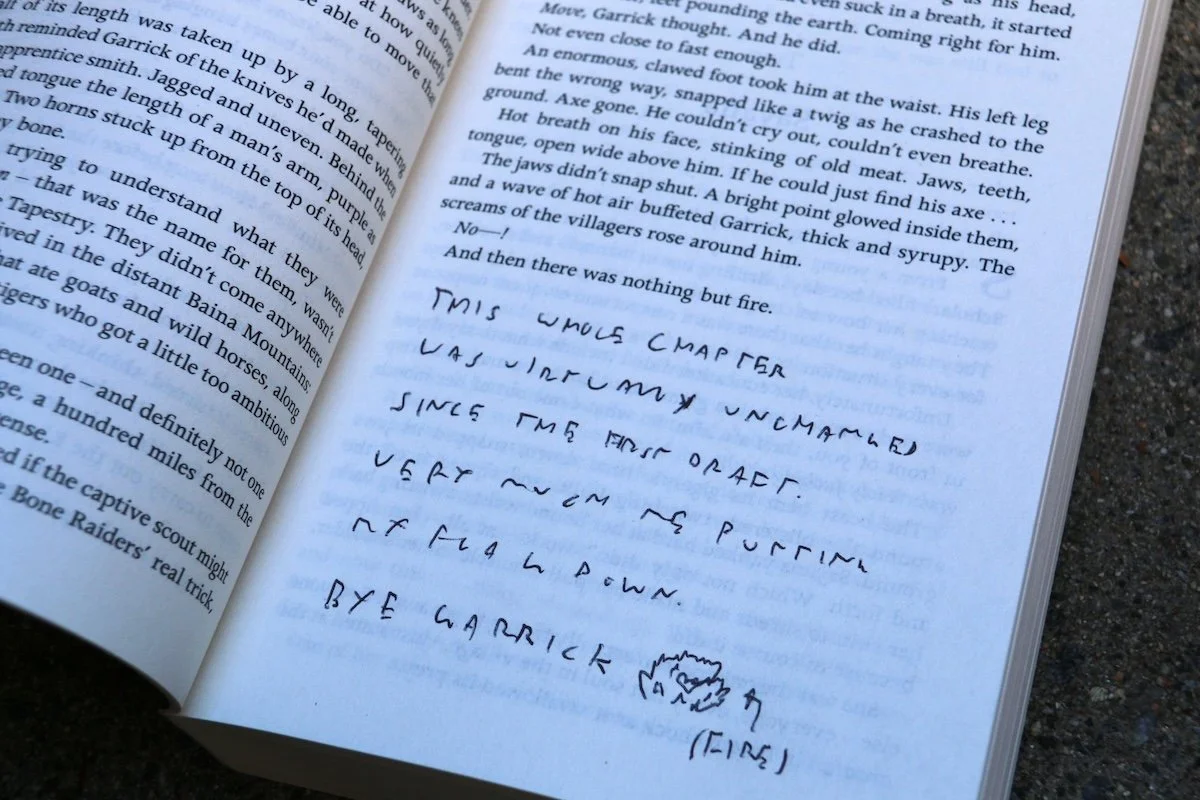 aws as long,
at how quietly
be able to move that
alf of its length was taken up by a long, tapering
reminded Garrick of the knives he'd made when
apprentice smith. Jagged and uneven. Behind the
tongue the length of a man's arm, purple as
Two horns stuck up from the top of its head,
y bone.
trying to understand what they were
– that was the name for them, wasn't
Tapestry. They didn't come anywhere
ived in the distant Baina Mountains:
hat ate goats and wild horses, along
tigers who got a little too ambitious
een one – and definitely not one
ge, a hundred miles from the
ense.
ed if the captive scout might
e Bone Raiders' real trick,
as his head,
even suck in a breath, it started
feet pounding the earth. Coming right for him.
Move, Garrick thought. And he did.
Not even close to fast enough.
An enormous, clawed foot took him at the waist. His left leg
bent the wrong way, snapped like a twig as he crashed to the
ground. Axe gone. He couldn't cry out, couldn't even breathe.
Hot breath on his face, stinking of old meat. Jaws, teeth,
tongue, open wide above him. If he could just find his axe . . .
The jaws didn't snap shut. A bright point glowed inside them,
and a wave of hot air buffeted Garrick, thick and syrupy. The
screams of the villagers rose around him.
No—!
And then there was nothing but fire.
THIS WHOLE CHAPTER
WAS VIRTUALLY UNCHANGED
SINCE THE FIRST DRAFT.
VERY MUCH ME PUTTING
MY FLAG DOWN.
BYE GARRICK
(FIRE)